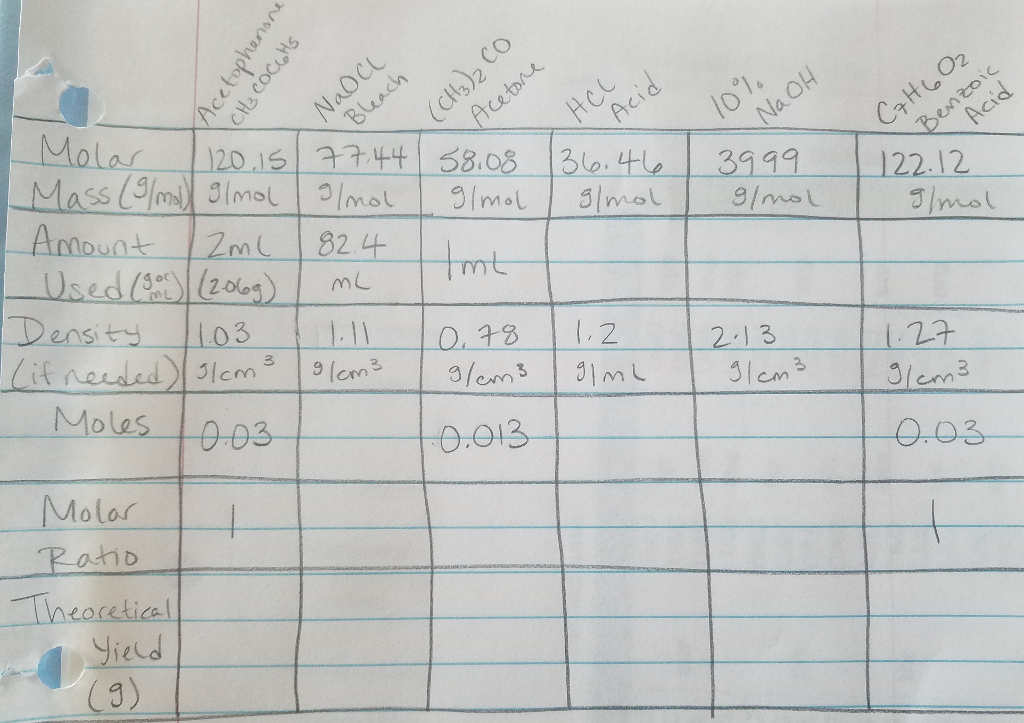 Acetophenone CH3COC6H5
NaOCl Bleach
(CH3)2CO Acetone
HCl Acid
10% NaOH
C7H6O2 Benzoic Acid
Molar 120.15 77.44 58.08 36.46 3999 122.12
Mass (g/mol) g/mol g/mol g/mol g/mol g/mol g/mol
Amount 2mL 82.4 1mL
Used (g or mL) (2.06g) mL
Density 1.03 1.11 0.78 1.2 2.13 1.27
(if needed) g/cm3 g/cm3 g/cm3 g/mL g/cm3 g/cm3
Moles 0.03 0.013 0.03
Molar 1 1
Ratio
Theoretical
Yield
(g)